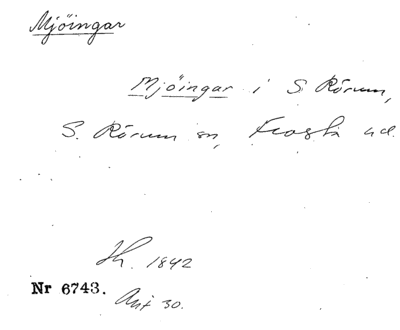 Mjöingar
Mjöingar i S Rörum,
S. Rörum sn, Frosta hd.
Jh. 1842
Nr 6743.
Ant 30.